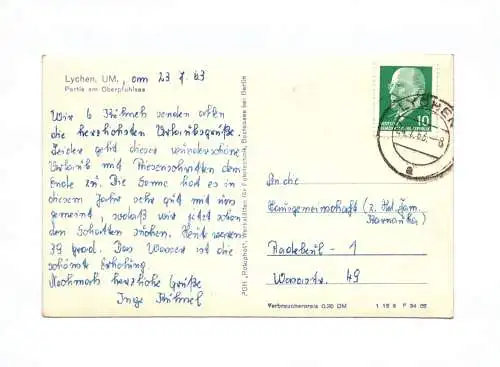 Lychen, UM., am 23 7. 63
Partie am Oberpfuhlsee
Wir 6 Kühnel senden allen
die herzlichsten Urlaubsgrüße.
Leider geht dieser wunderschöne
Urlaub mit Riesenschritten dem
Ende zu. Die Sonne hat es in
diesem Jahre sehr gut mit uns
gemeint, sodaß wir jetzt schon
den Schatten suchen. Heute waren
39 grad. Das Wasser ist die
schönste Erholung.
Nochmals herzliche Grüße
Inge Kühnel
PGH „Rotophot", Werkstätten für Fototechnik, Bestensee bei Berlin
10
LYCHEN
a
An die
Hausgemeinschaft (z. Hd. Fam.
Radebeul - 1
49
Verbraucherpreis 0,20 DM